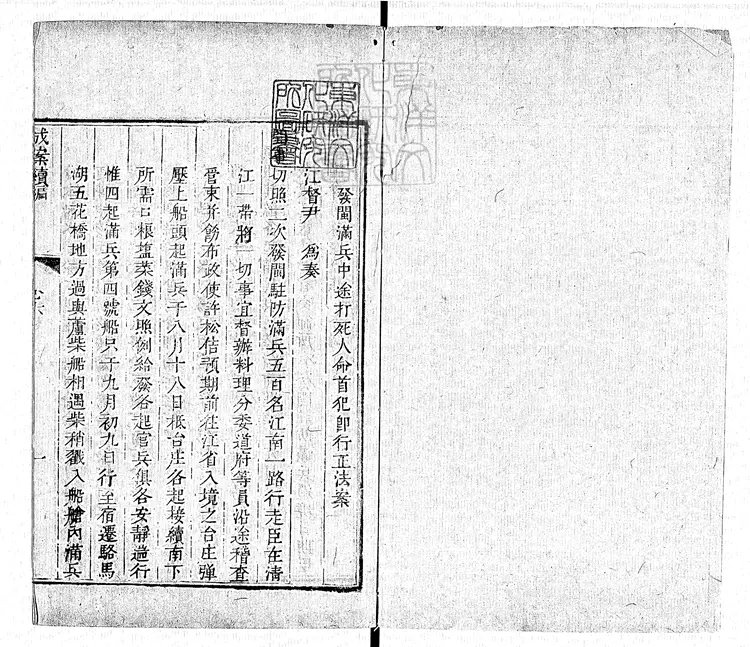 發閩滿兵中途打死人命首犯卽行正法案
江督尹 爲奏
切照二次發閩駐防滿兵五百名江南一路行走臣在淸
江一帶將一切事宜督辦料理分委道府等員沿途稽查
管束幷飭布政使許松佶預期前往江省入境之台庄彈
壓上船頭起滿兵于八月十八日抵台庄各起接續南下
所需口粮塩菜錢文照例給發各起官兵俱各安靜遄行
惟四起滿兵第四號船只于九月初九日行至宿遷駱馬
湖五花橋地方過與蘆柴船相遇柴稍戳入船艙內滿兵
成案續編
一